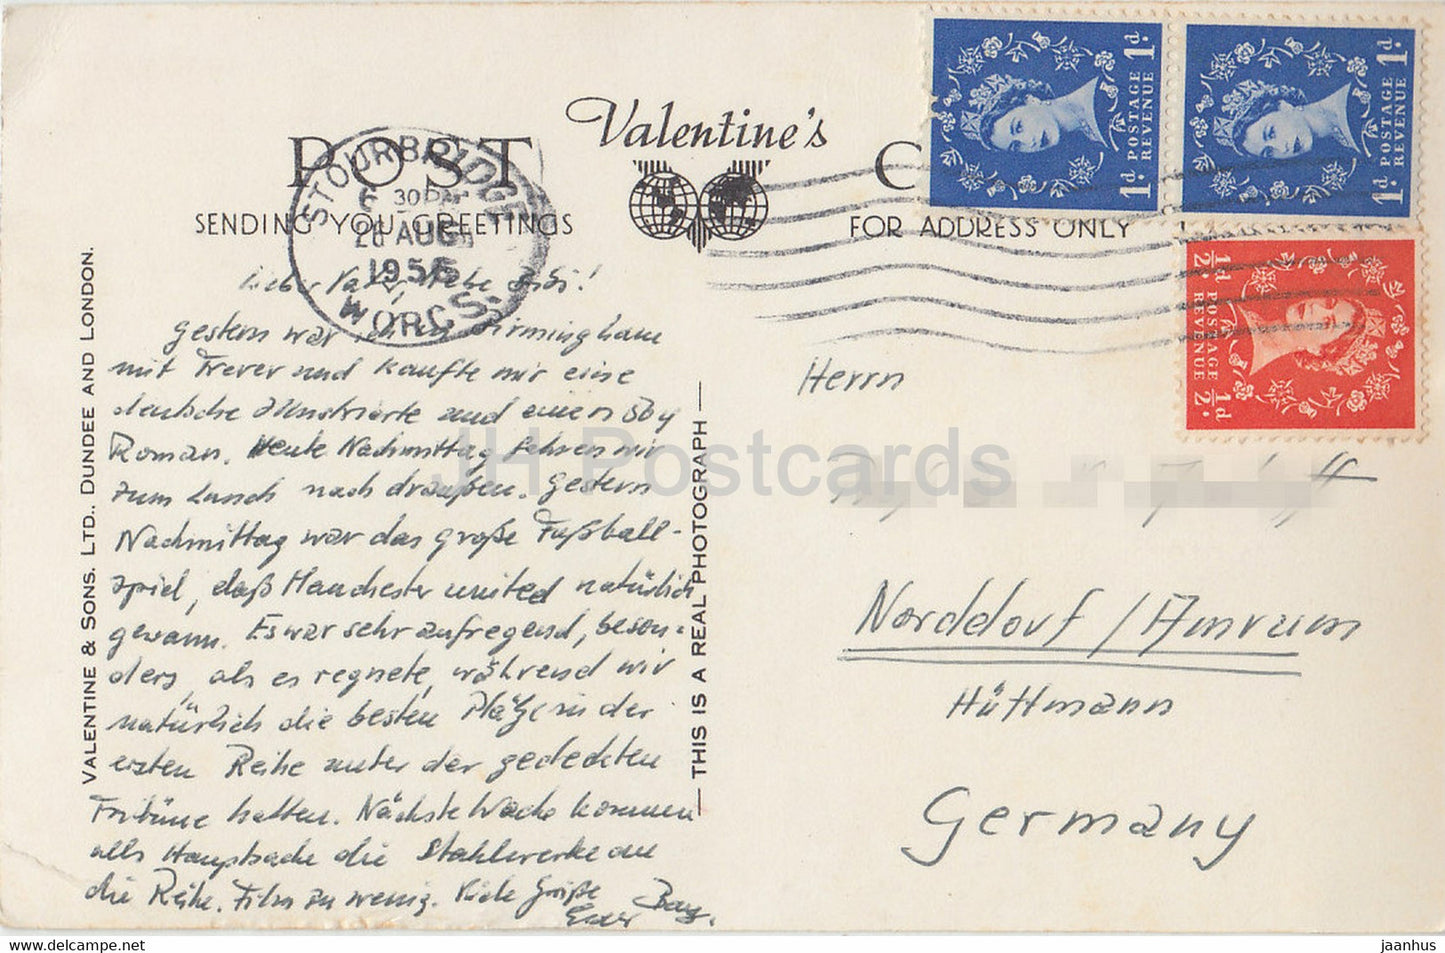 Valentine's
POST C
SENDING YOU GREETINGS
FOR ADDRESS ONLY
STOURBRIDGE
30 PM
26 AUG
1956
WORCS.
1d. POSTAGE REVENUE 1d.
1d. POSTAGE REVENUE 1d.
1/2d. POSTAGE REVENUE 1/2d.
VALENTINE & SONS. LTD., DUNDEE AND LONDON.
THIS IS A REAL PHOTOGRAPH
Lieber Vater, liebe
gestern war ich in Birmingham
mit Trever und kaufte mir eine
deutsche Illustrierte und einen
Roman. Heute Nachmittag fahren wir
zum Lunch nach draußen. Gestern
Nachmittag war das große Fußball-
spiel, daß Manchester united natürlich
gewann. Es war sehr aufregend, beson-
ders, als es regnete, während wir
natürlich die besten Plätze in der
ersten Reihe unter der gedeckten
Tribüne hatten. Nächste Woche kommen
als Hauptsache die Stahlwerke an
die Reihe. Film zu wenig. Viele Grüße
Euer
Herrn
Norddorf / Amrum
Hüttmann
Germany
JH Postcards
jaanhus